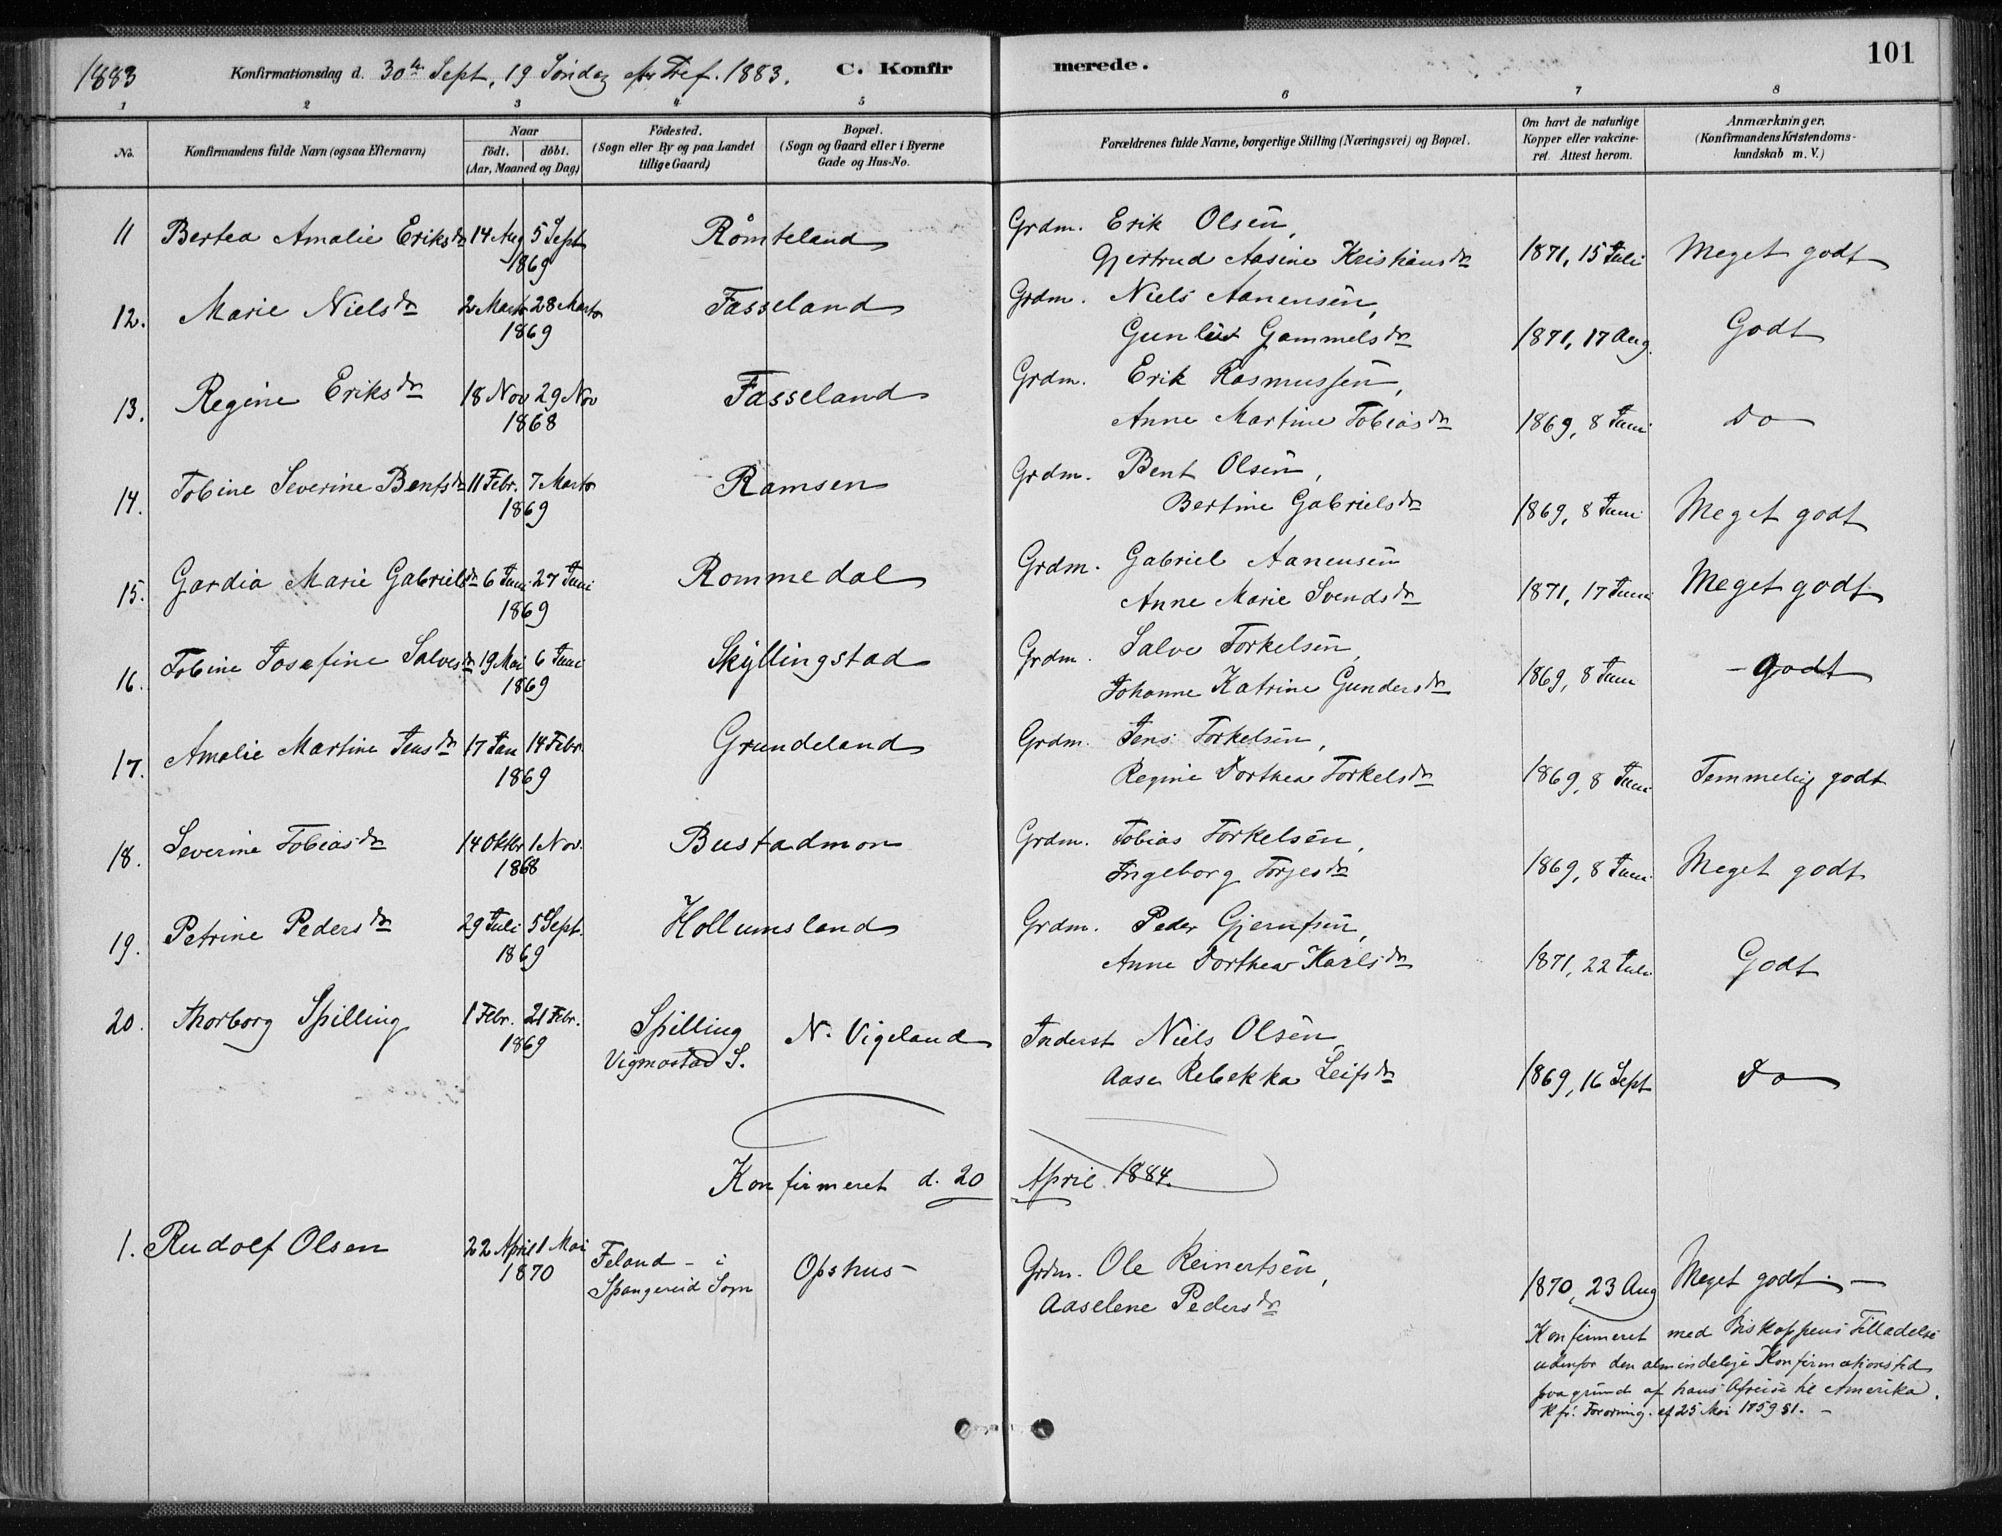 101
1883 Konfirmationsdag d. 30te Sept, 19 Søndag eft Tref. 1883. C. Konfirmerede.
1 2 3 4 5 6 7 8
No. Konfirmandens fulde Navn (ogsaa Efternavn) Naar født. døbt. (Aar, Maaned og Dag) Födested. (Sogn eller By og paa Landet tillige Gaard) Bopæl. (Sogn og Gaard eller i Byerne Gade og Hus-No. Forældrenes fulde Navne, borgerlige Stilling (Næringsvei) og Bopæl. Om havt de naturlige Kopper eller vakcineret. Attest herom. Anmærkninger. (Konfirmandens Kristendomskundskab m. V.)
11 Bertea Amalie Eriksdr 14 Aug 5 Sept Römteland Grdm. Erik Olsen,
1869 Gjertrud Aasine Kristiansdr 1871, 15 Juli Meget godt
12. Marie Nielsdr 2 Marts 28 Marts Fasseland Grdm. Niels Aanensen,
1869 Gunlut Gammelsdr 1871, 17 Aug. Godt
13. Regine Eriksdr 18 Nov 29 Nov Fasseland Grdm. Erik Rasmussen,
1868 Anne Martine Tobiasdr 1869, 8 Juni Do
14. Tobine Severine Bentsdr 11 Febr. 7 Marts Ramsen Grdm. Bent Olsen,
1869 Bertine Gabrielsdr 1869, 8 Juni Meget godt
15. Gardia Marie Gabrielsdr 6 Juni 27 Juni Rommedal Grdm. Gabriel Aanensen
1869 Anne Marie Svendsdr 1871, 17 Juni Meget godt
16. Tobine Josefine Salvesdr 19 Mai 6 Juni Skyllingstad Grdm. Salve Torkelsen,
1869 Johanne Katrine Gundersdr 1869, 8 Juni - godt
17. Amalie Martine Jensdr 17 Jan 14 Febr. Grundeland Grdm. Jens Torkelsen,
1869 Regine Dorthea Torkelsdr 1869, 8 Juni Temmelig godt
18. Severine Tobiasdr 14 Oktbr 1 Nov. Bustadmon Grdm. Tobias Torkelsen,
1868 Ingeborg Torjesdr 1869, 8 Juni Meget godt
19. Petrine Pedersdr 29 Juli 5 Sept. Hollumsland Grdm. Peder Gjerufsen,
1869 Anne Dorthea Karlsdr 1871, 22 Juli Godt
20. Thorborg Spilling 1 Febr. 21 Febr. Spilling N. Vigeland Inderst Niels Olsen
1869 Vigmostad S. Aase Rebekka Leifsdr 1869, 16 Sept Do
Konfirmeret d. 20 April 1884.
1. Rudolf Olsen 22 April 1 Mai Feland - i Opshus - Grdm. Ole Reinertsen,
1870 Spangereid Sogn Aaselene Pedersdr 1870, 23 Aug Meget godt. -
Konfirmeret med Biskoppens Tilladelse
udenfor den almindelige Konfirmationstid
paa grund af hans Afreise til Amerika.
Kfr. Forordning. af 25 Mai 1759 §1. -